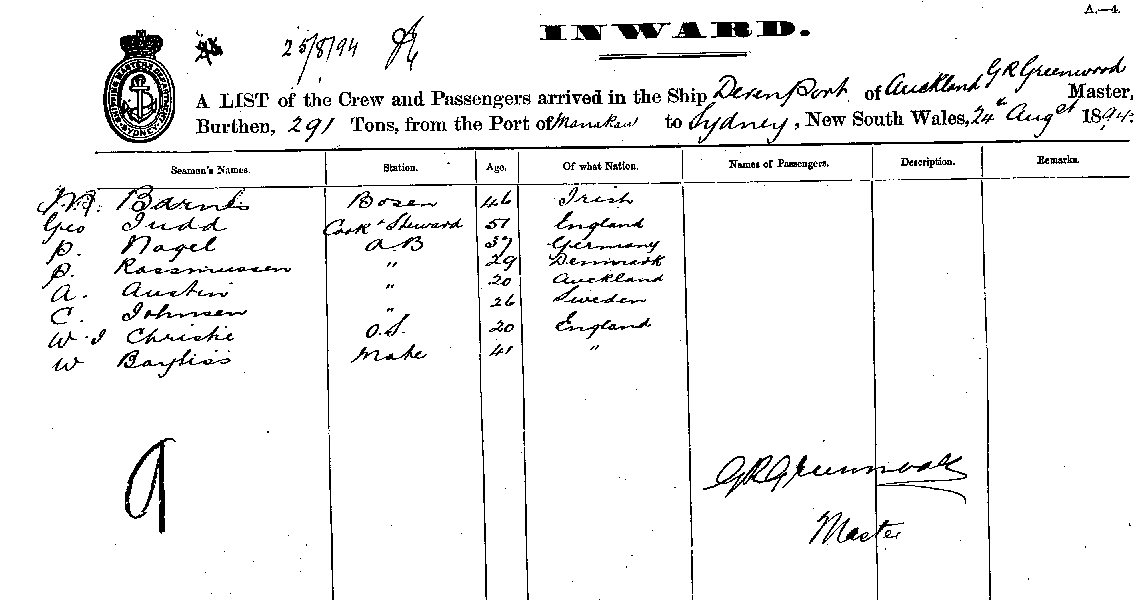 A.—4.
INWARD.
25/8/94
A LIST of the Crew and Passengers arrived in the Ship Devenport of Auckland G R Greenwood Master,
Burthen, 291 Tons, from the Port of Manukau to Sydney, New South Wales, 24th Augst 1894.
Seamen's Names. Station. Age. Of what Nation. Names of Passengers. Description. Remarks.
Barnes Bosen 46 Irish
Geo Judd Cook & Steward 51 England
P. Nagel A.B 37 Germany
P. Rassmussen " 29 Denmark
A. Austin " 20 Auckland
C. Johnsen " 26 Sweden
W. J Christie O.S. 20 England
W Bayliss Mate 41 "
9
G R Greenwood
Master